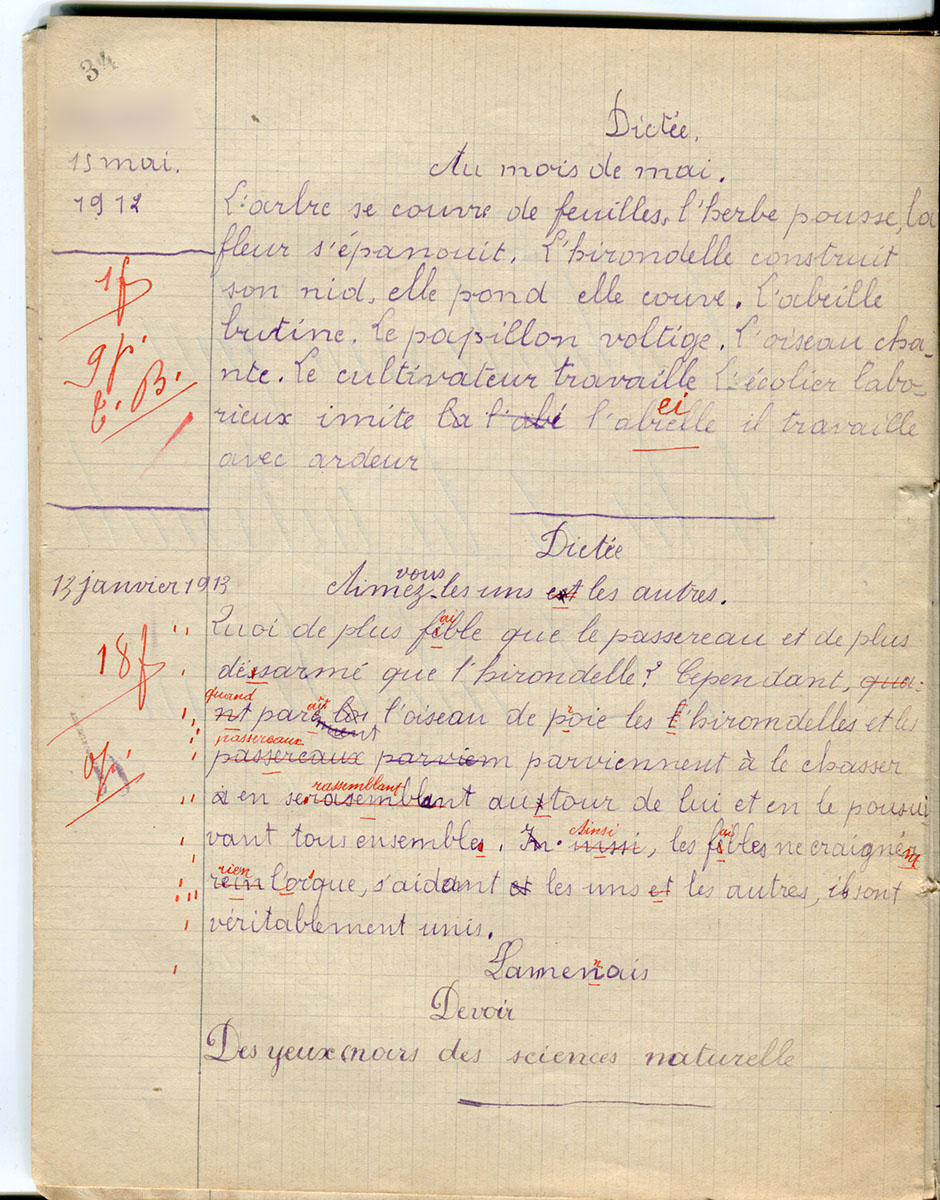 34
Dictée.
15 mai.
1912
Au mois de mai.
L'arbre se couvre de feuilles, l'herbe pousse, la
fleur s'épanouit. L'hirondelle construit
son nid, elle pond elle couve. L'abeille
butine. Le papillon voltige. L'oiseau cha-
nte. Le cultivateur travaille L'écolier labo-
rieux imite la l'abi l'abielle il travaille
ei
avec ardeur
1f
9p.
t. B.
Dictée
13 janvier 1913
vous
Aimez-les uns est les autres.
ai
Quoi de plus fible que le passereau et de plus
18f
déssarmé que l'hirondelle? Cependant, qua-
quand
nt l'oiseau de poie les l'hirondelles et les
passereaux
passereaux parviem parviennent à le chasser
0p.
rassemblant
a en se rasemblant autour de lui et en le poursui
Ainsi
ai
vant tous ensembles. missi, les fibles ne craigné
nt
rien
rein l'orgue, s'aidant et les uns et les autres, ils sont
véritablement unis.
n
Lamenais
Devoir
Des yeux nars des sciences naturelle